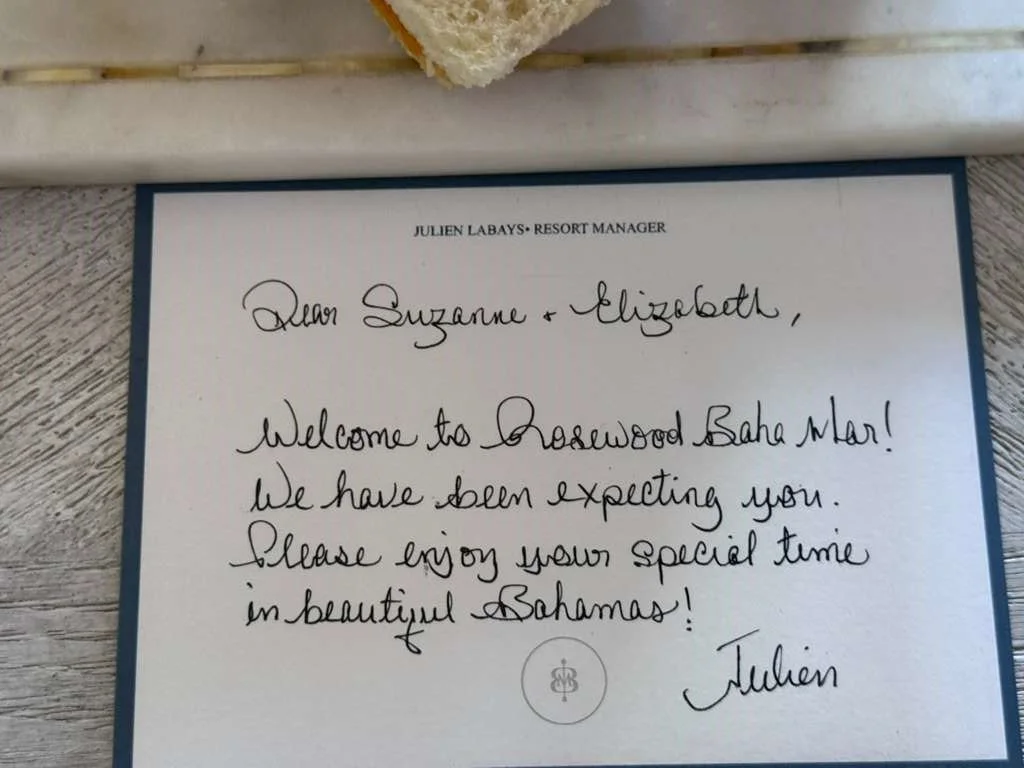 JULIEN LABAYS• RESORT MANAGER
Dear Suzanne + Elizabeth,
Welcome to Rosewood Baha Mar!
We have been expecting you.
Please enjoy your special time
in beautiful Bahamas!
Julien